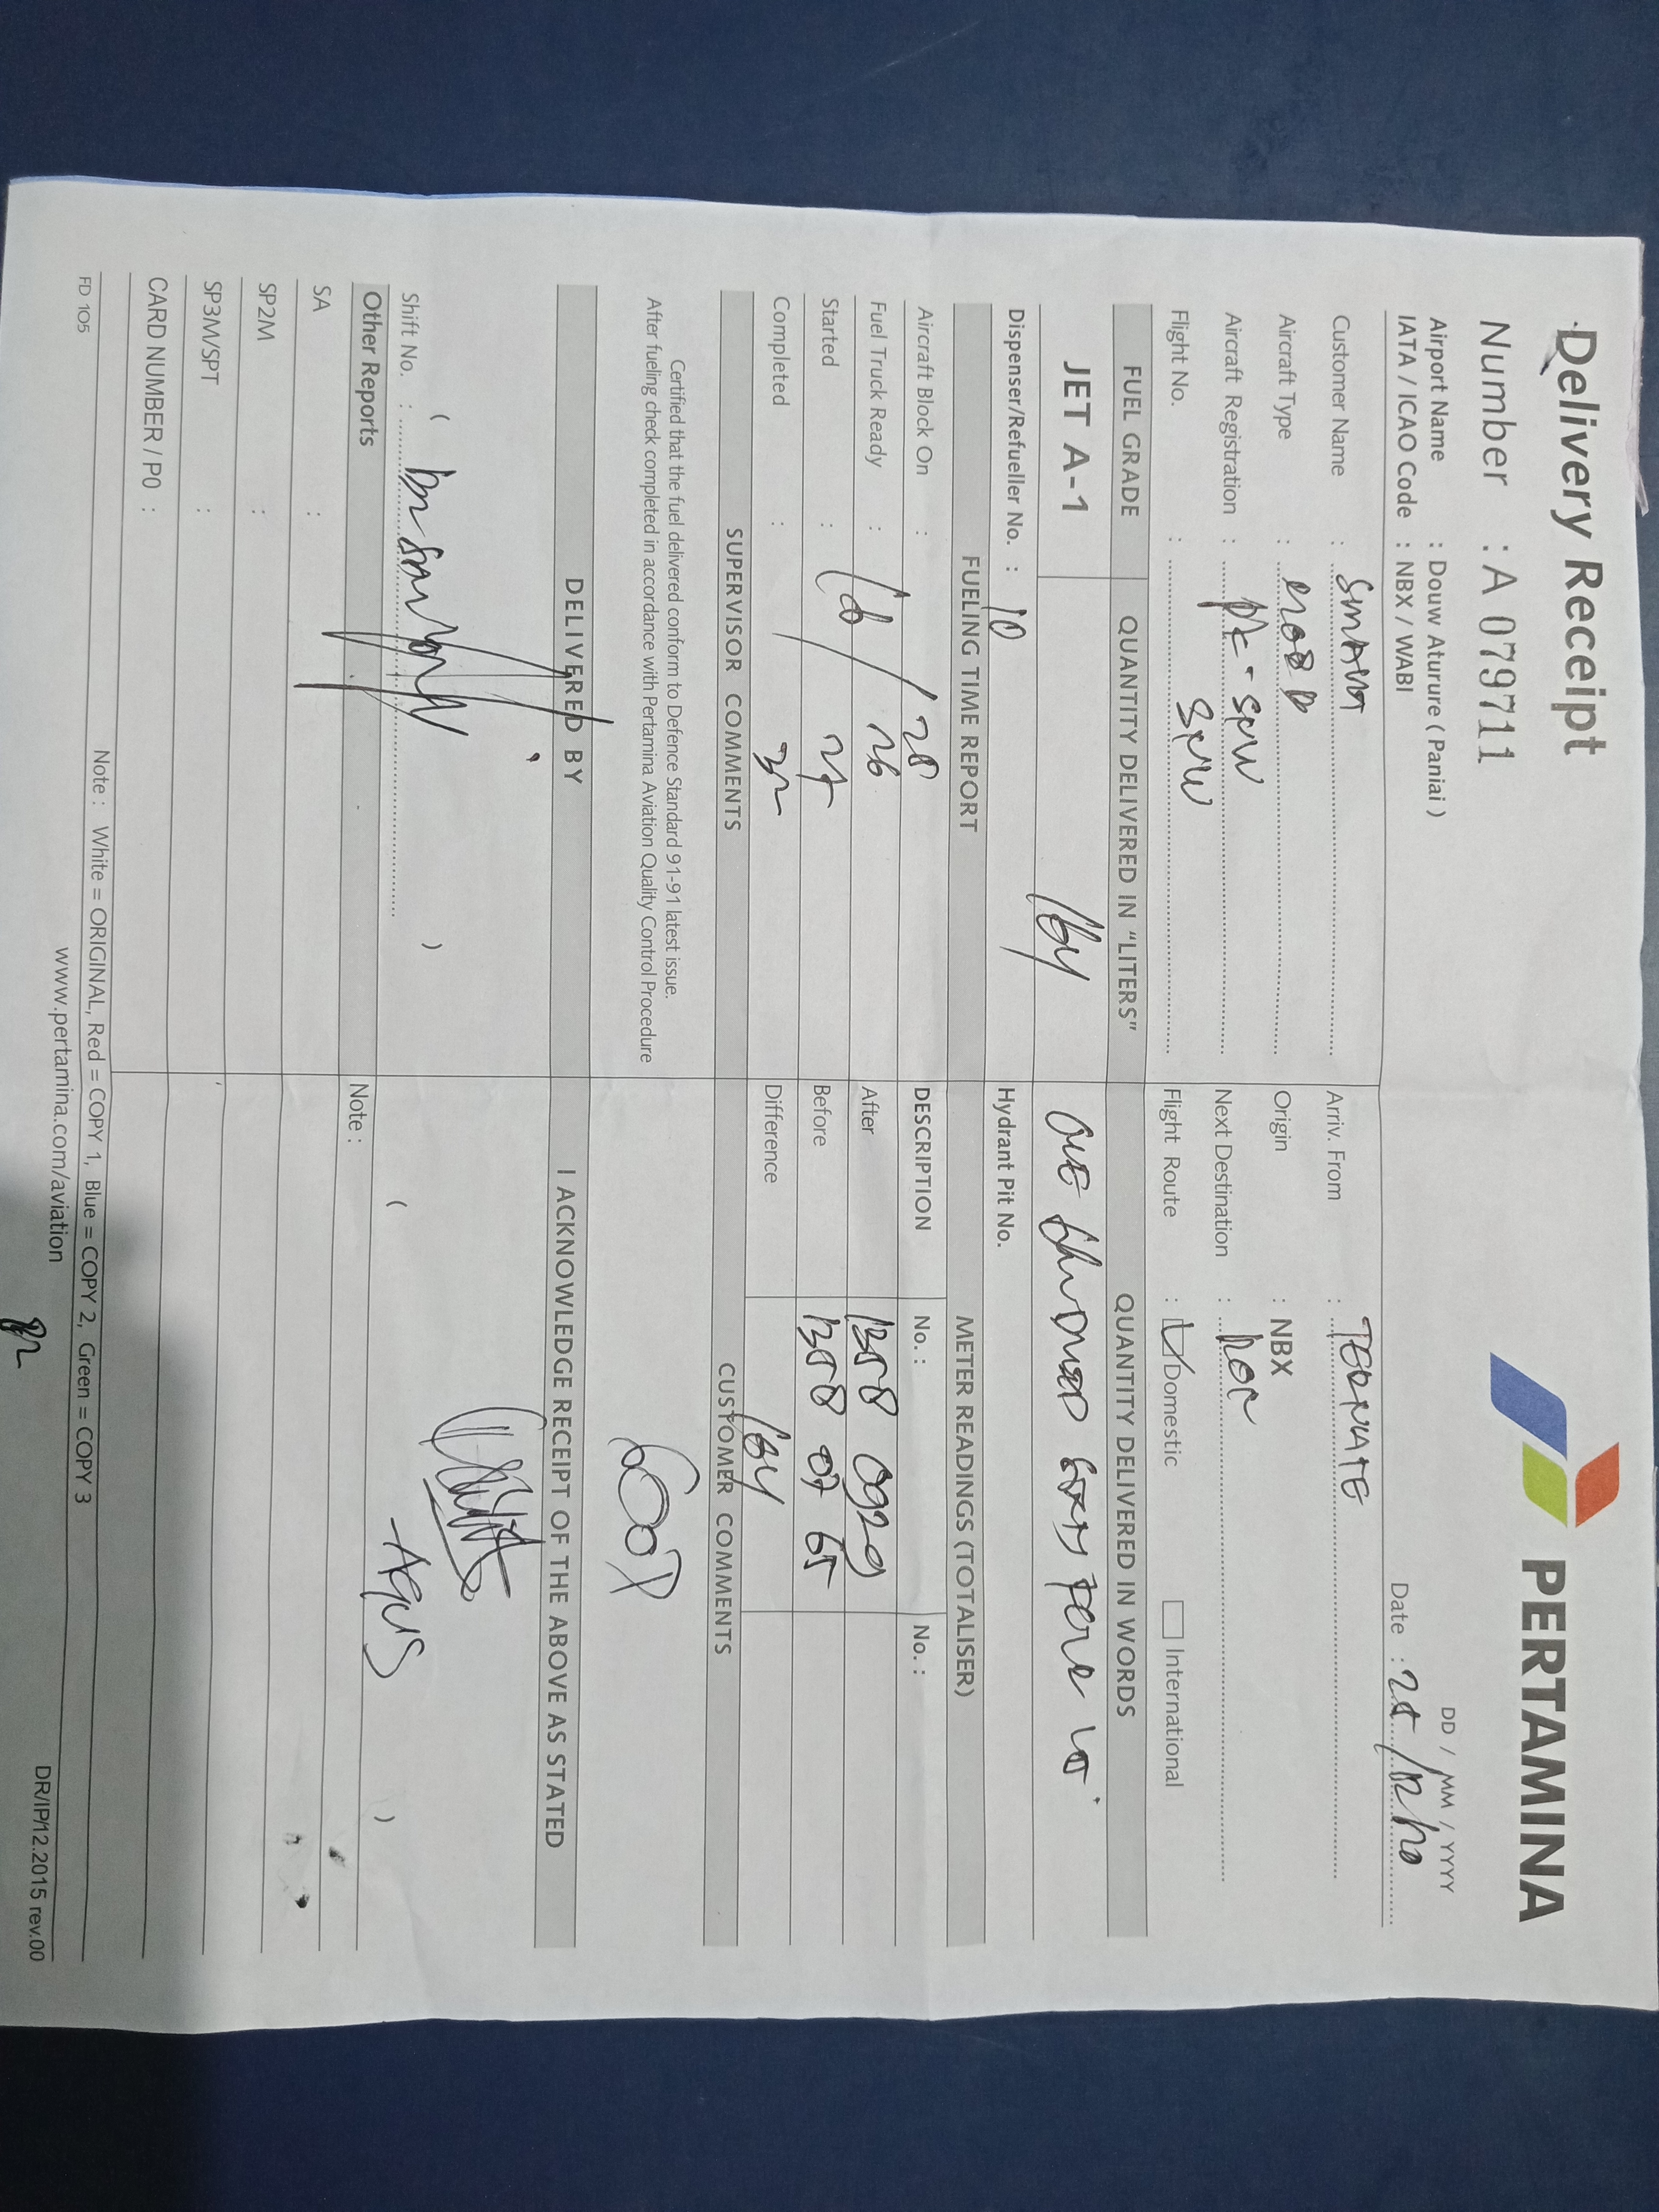 Delivery Receipt
PERTAMINA
Number : A 079711
DD / MM / YYYY
Airport Name : Douw Aturure ( Paniai )
IATA / ICAO Code : NBX / WABI
Date :
Customer Name : SMART
Arriv. From : TERNATE
Aircraft Type :
Origin : NBX
Aircraft Registration : PK - SNW
Next Destination :
Flight No. : SNW
Flight Route : Domestic International
FUEL GRADE QUANTITY DELIVERED IN "LITERS" QUANTITY DELIVERED IN WORDS
JET A-1 164 ONE HUNDRED SIXTY FOUR
Dispenser/Refueller No. : 10
Hydrant Pit No.
FUELING TIME REPORT METER READINGS (TOTALISER)
Aircraft Block On : 20
DESCRIPTION No. : No. :
Fuel Truck Ready : 26
After 1358 0929
Started : 27
Before 1358 07 65
Completed : 32
Difference 164
SUPERVISOR COMMENTS CUSTOMER COMMENTS
Certified that the fuel delivered conform to Defence Standard 91-91 latest issue.
After fueling check completed in accordance with Pertamina Aviation Quality Control Procedure
GOOD
DELIVERED BY I ACKNOWLEDGE RECEIPT OF THE ABOVE AS STATED
( )
( AGUS )
Shift No. :
Other Reports
Note :
SA :
SP2M :
SP3M/SPT :
CARD NUMBER / PO :
FD 105
Note : White = ORIGINAL, Red = COPY 1, Blue = COPY 2, Green = COPY 3
www.pertamina.com/aviation
DR/IP/12.2015 rev.00